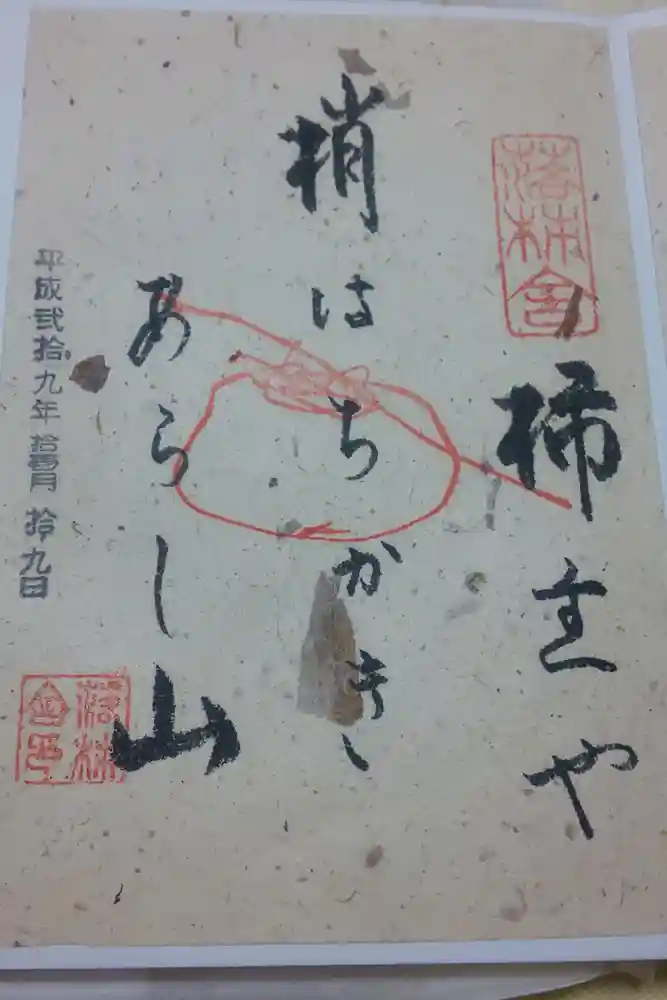 落柿舎
柿主や
梢はちかき
あらし山
平成弐拾九年拾壹月拾九日
落柿舎印